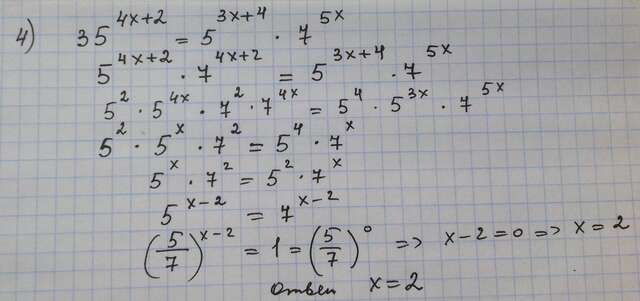 4) 35^{4x+2} = 5^{3x+4} · 7^{5x}
5^{4x+2} · 7^{4x+2} = 5^{3x+4} · 7^{5x}
5^2 · 5^{4x} · 7^2 · 7^{4x} = 5^4 · 5^{3x} · 7^{5x}
5^2 · 5^x · 7^2 = 5^4 · 7^x
5^x · 7^2 = 5^2 · 7^x
5^{x-2} = 7^{x-2}
(5/7)^{x-2} = 1 = (5/7)^0 => x-2=0 => x=2
Ответ x=2